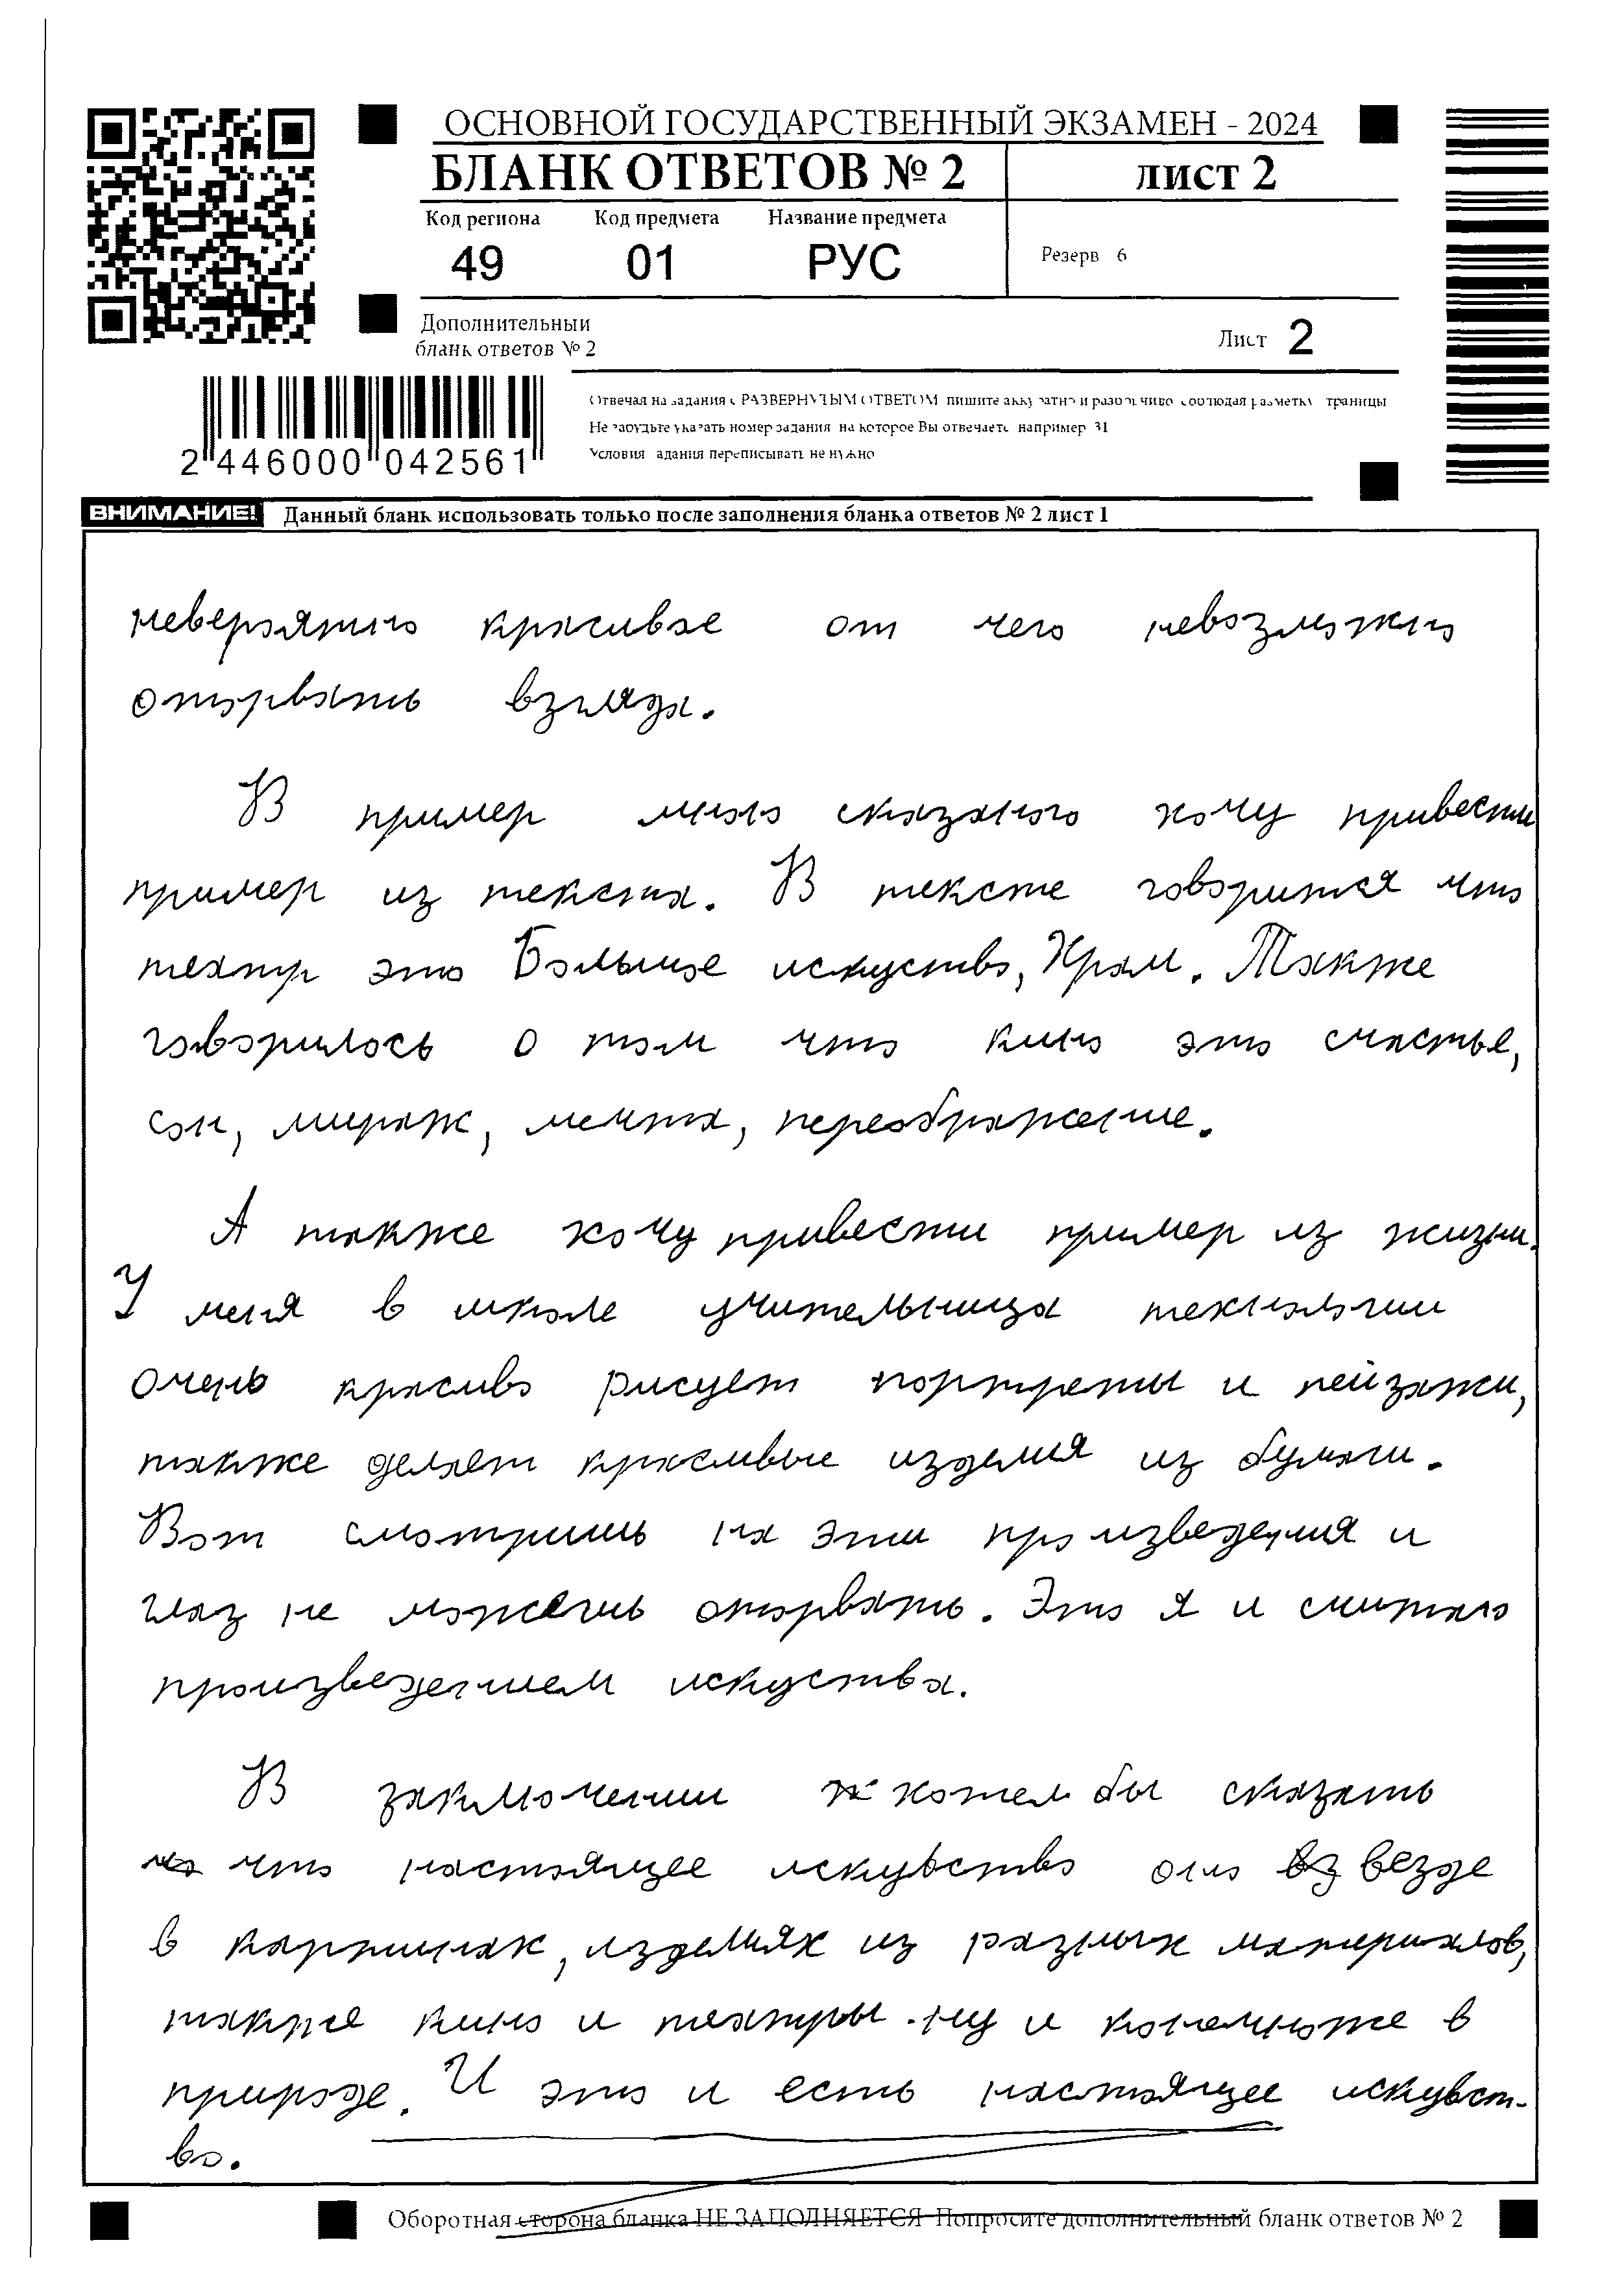 ОСНОВНОЙ ГОСУДАРСТВЕННЫЙ ЭКЗАМЕН - 2024
БЛАНК ОТВЕТОВ № 2
лист 2
Код региона
Код предмета
Название предмета
49
01
РУС
Резерв 6
Дополнительный
бланк ответов № 2
Лист 2
Отвечая на задания с РАЗВЕРНУТЫМ ОТВЕТОМ пишите аккуратно и разборчиво соблюдая разметку страницы
Не забудьте указать номер задания на которое Вы отвечаете например 31
Условия задания переписывать не нужно
2 446000 042561
ВНИМАНИЕ! Данный бланк использовать только после заполнения бланка ответов № 2 лист 1
неверзятно красивое от чего невозможно
оторвать взгляда.
В пример мною сказаного хочу привести
пример из текста. В тексте говорится что
театр это Большое искуство, Храм. Также
говорилось о том что кино это счастье,
сон, мираж, мечта, переображение.
А также хочу привести пример из жизни.
У меня в школе учительница технологии
очень красиво рисует портреты и пейзажи,
также делает красивые изделия из бумаги.
Вот смотришь на эти произведения и
глаз не можешь оторвать. Это я и считаю
произведением искуства.
В заключении хотел бы сказать
что настоящее искувство оно везде
в картинах, изделиях из разных материалов,
также кино и театры. ну и конечноже в
природе. И это и есть настоящее искувст-
во.
Оборотная сторона бланка НЕ ЗАПОЛНЯЕТСЯ Попросите дополнительный бланк ответов № 2